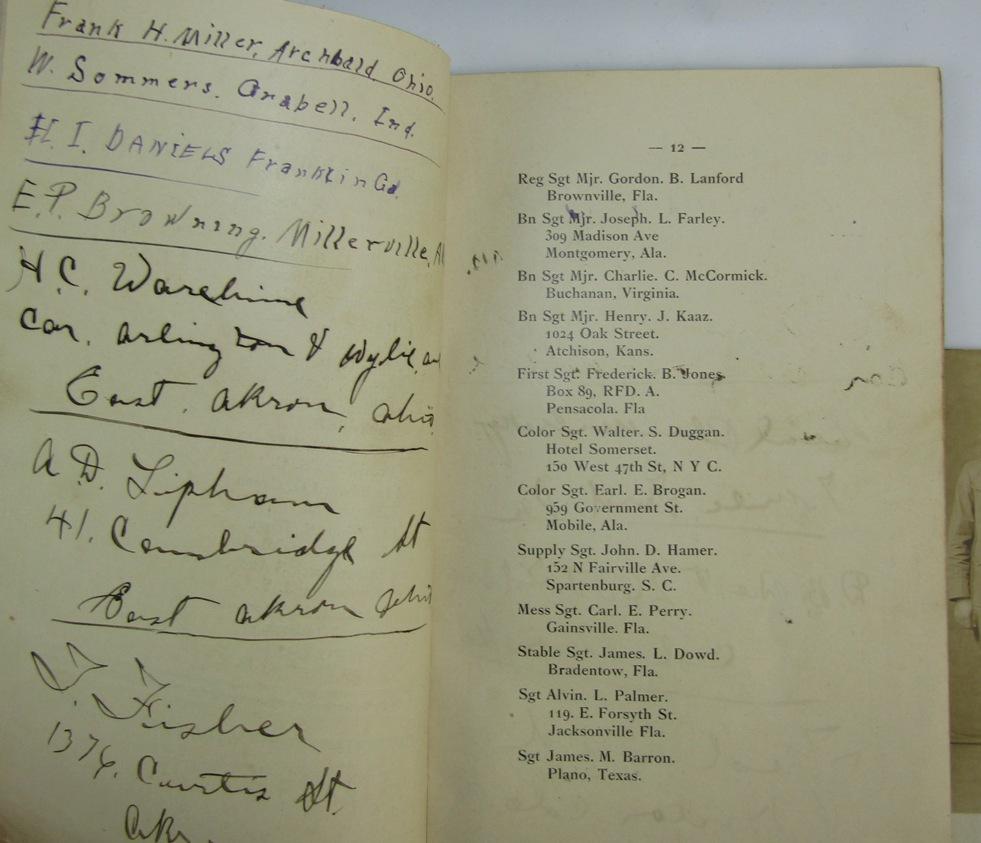 Frank H. Miller, Archbald Ohio.
W. Sommers. Arabell, Ind.
H. I. DANIELS Franklin Ga.
E. P. Browning. Millerville, Al
H. C. Warehime
Cor. arlington & Wylie, av
East. akron, ohio
A. D. Lipham
41. Cambridge St
East akron Ohio
J. Fisher
1376. Curtis St.
Akr
— 12 —
Reg Sgt Mjr. Gordon. B. Lanford
Brownville, Fla.
Bn Sgt Mjr. Joseph. L. Farley.
309 Madison Ave
Montgomery, Ala.
Bn Sgt Mjr. Charlie. C. McCormick.
Buchanan, Virginia.
Bn Sgt Mjr. Henry. J. Kaaz.
1024 Oak Street.
Atchison, Kans.
First Sgt. Frederick. B. Jones.
Box 89, RFD. A.
Pensacola. Fla
Color Sgt. Walter. S. Duggan.
Hotel Somerset.
150 West 47th St, N Y C.
Color Sgt. Earl. E. Brogan.
959 Government St.
Mobile, Ala.
Supply Sgt. John. D. Hamer.
152 N Fairville Ave.
Spartenburg. S. C.
Mess Sgt. Carl. E. Perry.
Gainsville. Fla.
Stable Sgt. James. L. Dowd.
Bradentow, Fla.
Sgt Alvin. L. Palmer.
119. E. Forsyth St.
Jacksonville Fla.
Sgt James. M. Barron.
Plano, Texas.